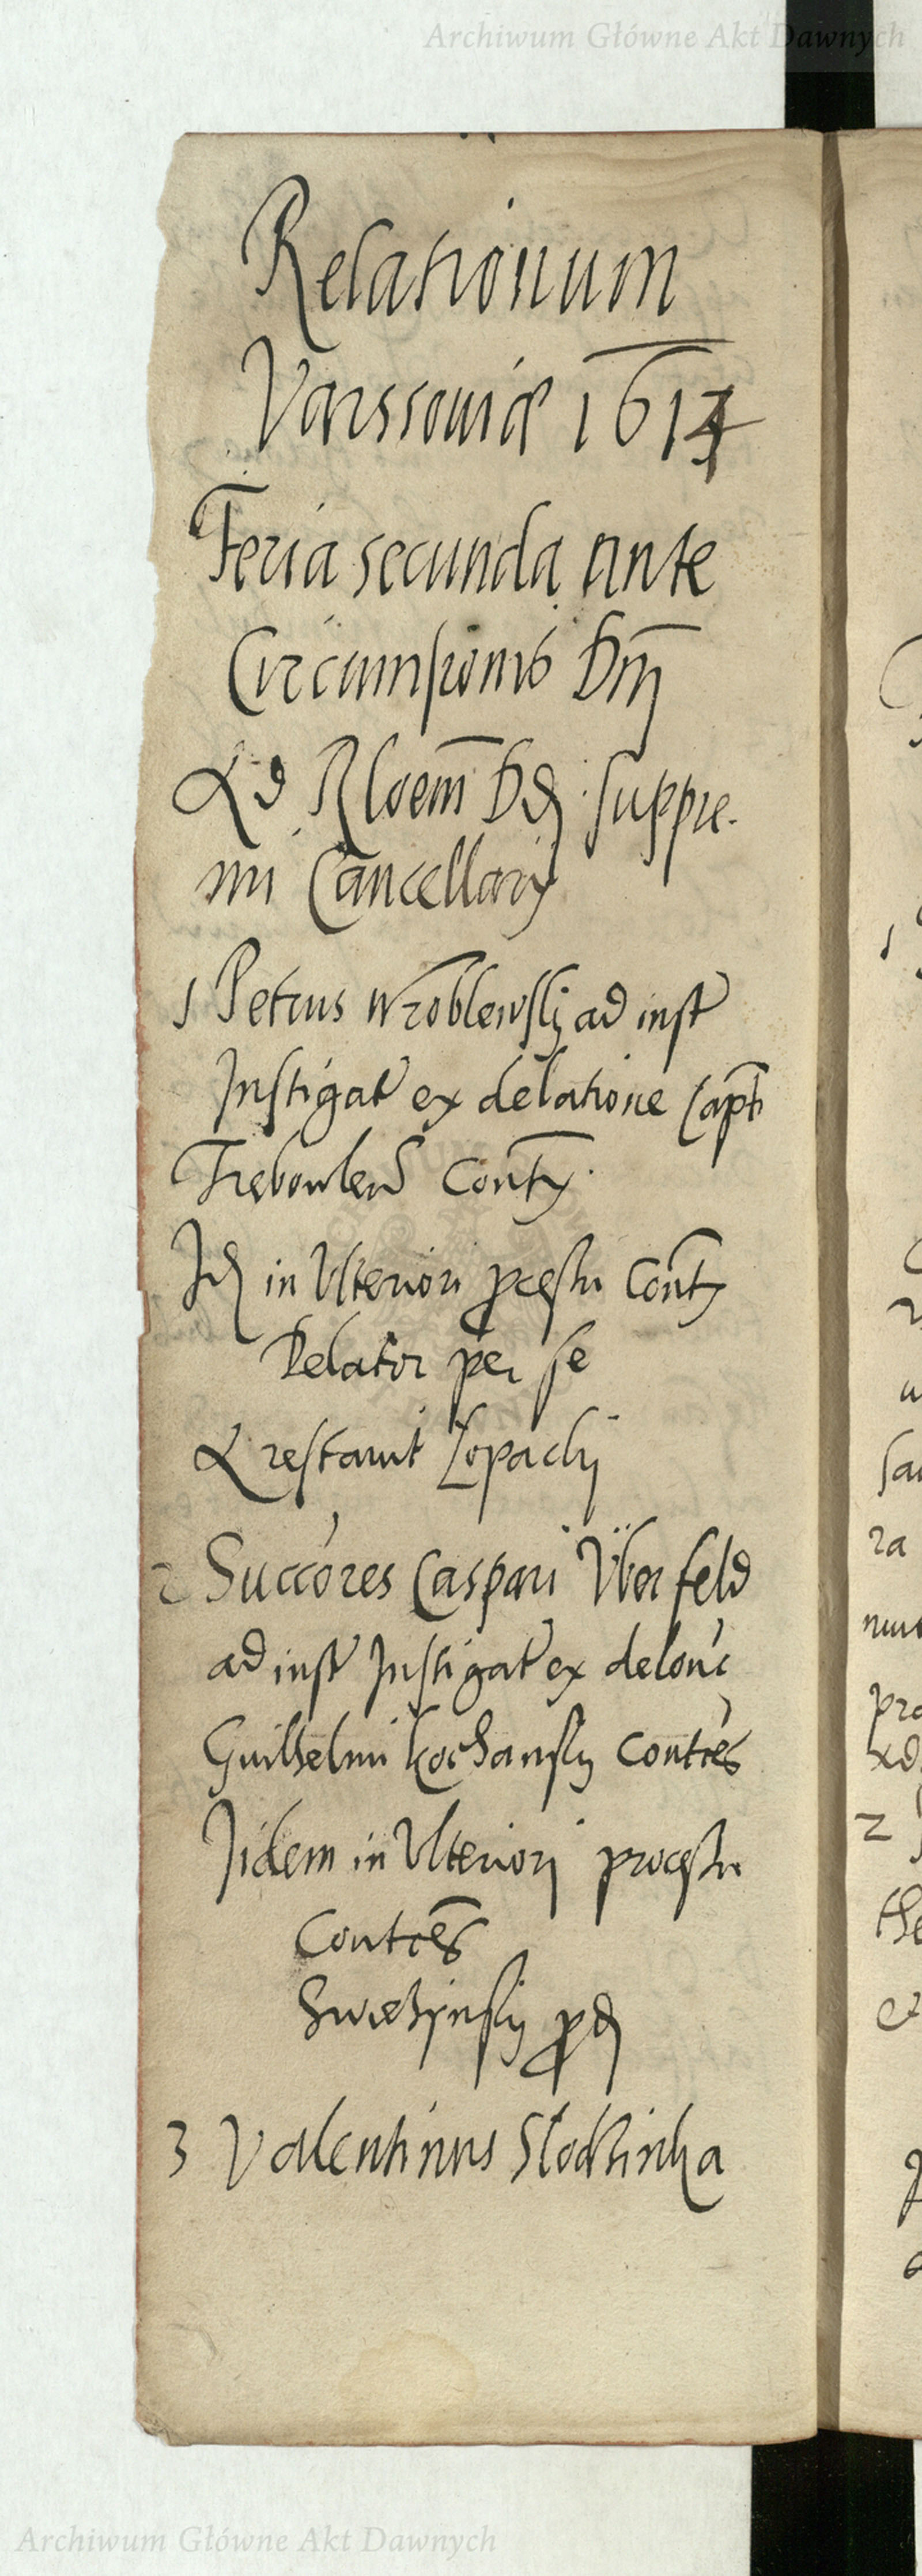 Archiwum Główne Akt Dawnych
Relationum
Varssouiæ 1614
Feria secunda ante
Circumsionis Dnj
Ad Rloem Dd suppre-
mi Cancellarij
1 Petrus Wroblewskj ad inst
Instigat ex delatione Capt
Trebowlen Cont
Id in Vlteriori pcessu Cont
Delator per se
A restant Lopackj
2 Succores Caspari Vberfeld
ad inst Instigat ex delonc
Guilhelmi Kochansky Contes
Jidem in Vlteriorj processu
Contes
Swiezynsky pd
3 Valentinus Slodzinka
Archiwum Główne Akt Dawnych